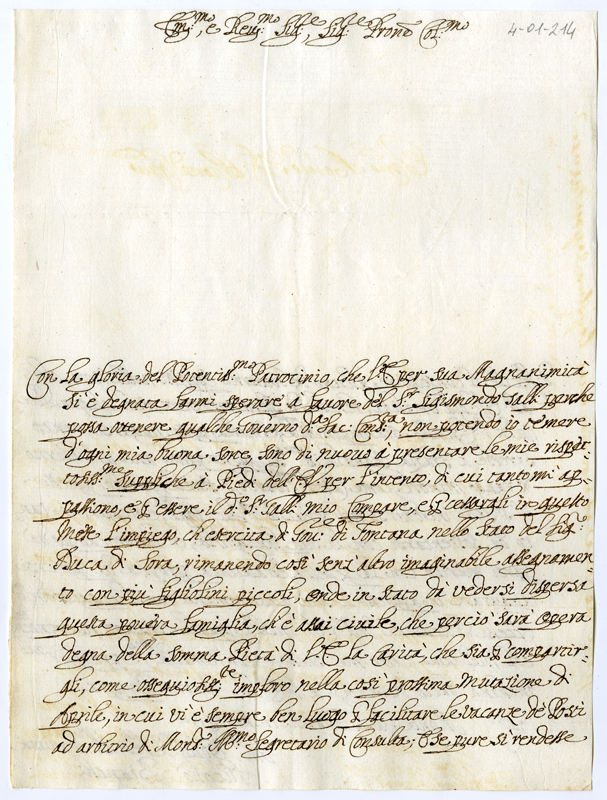 Em.mo, e Rev.mo Sig.re, Sig.re Pron. Col.mo
4-01-214
Con la gloria del Potentis.mo Patrocinio, che l'E. per sua Magnanimità
si è degnata farmi sperare a favore del S.r Sigismondo Gall. perche
possa ottenere qualche Governo d.a Sac. Cons.ta, non potendo io temere
d'ogni mia buona sorte, sono di nuovo a presentare le mie rispet-
tosis.me suppliche à Piedi dell'E. per l'intento, di cui tanto mi ap-
passiono, e p essere il d.o S.r Gall. mio Compare, e p cessargli in questo
Mese l'impiego, ch'esercita di Gov.re di Fontana nello Stato del Sig.r
Duca di Sora, rimanendo così senz'altro imaginabile assegnamen-
to con più figliolini piccoli, onde in stato dà vedersi dispersa
questa povera famiglia, ch'è assai civile, che perciò sarà opera
degna della somma Pietà di l'E. la Carità, che sia p compartir-
gli, come ossequiosis.te imploro nella così prossima mutazione di
Aprile, in cui vi è sempre ben luogo p facilitare le vacanze de Posti
ad arbitrio di Mons.r Ill.mo Segretario di Consulta; Che pure si rendesse